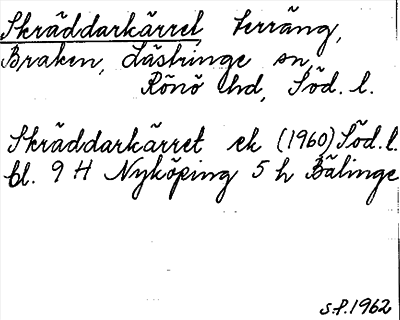 Skräddarkärret, terräng,
Braken, Lästringe sn,
Rönö hd, Söd. l.
Skräddarkärret ek (1960) Söd. l.
bl. 9 H Nyköping 5 h Bälinge
S.P. 1962